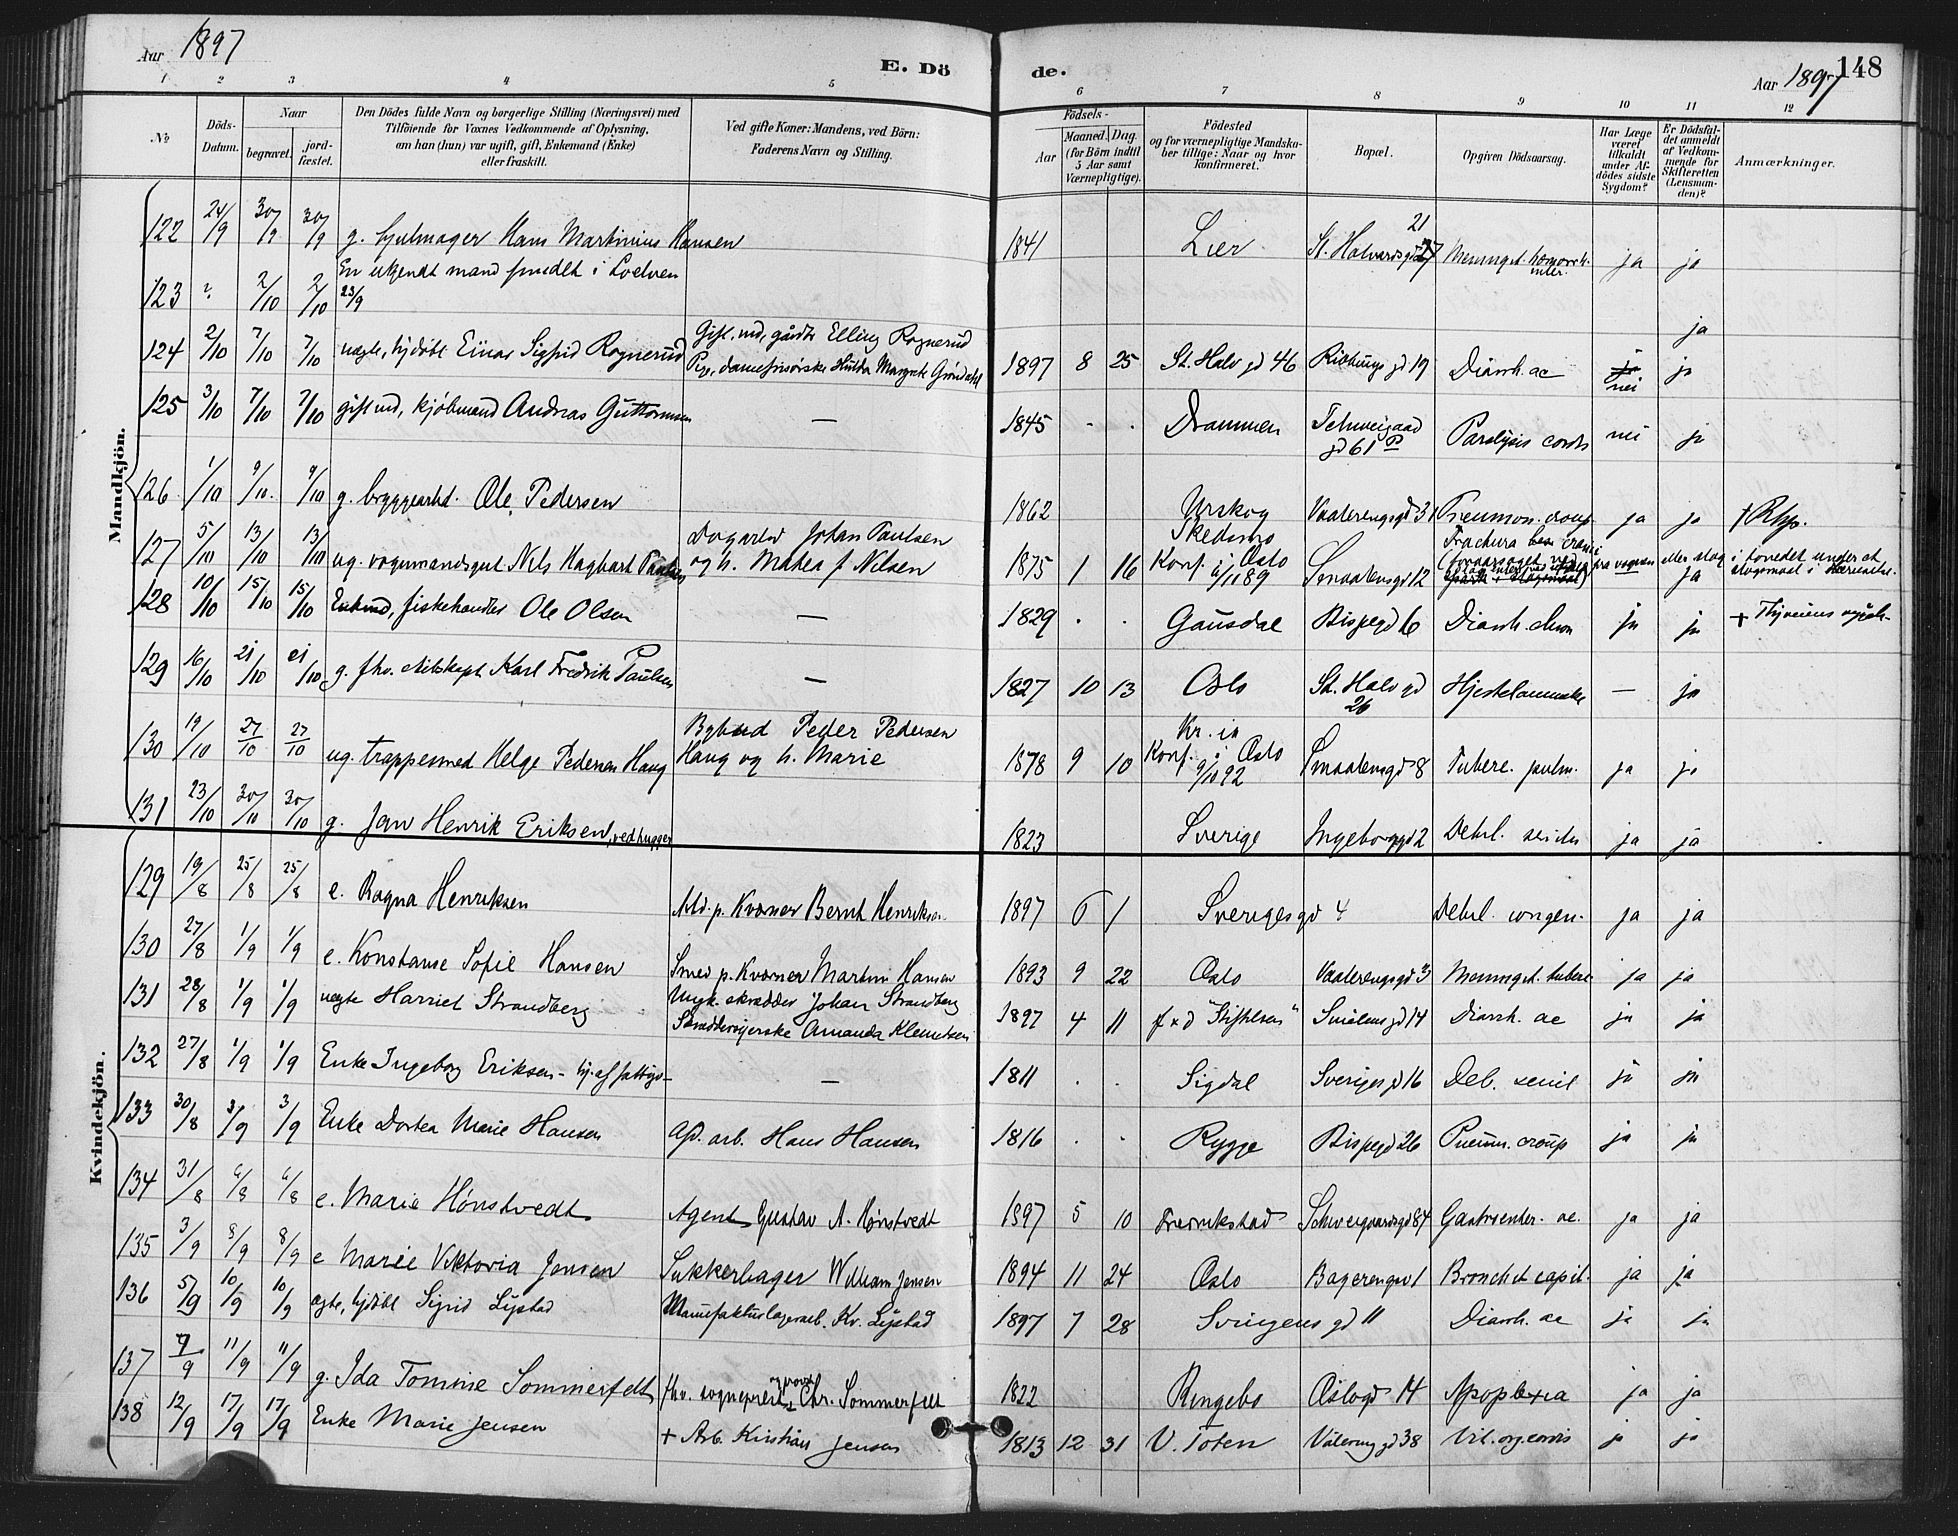 Aar 1897
E. Döde.
Aar 1897
148
1 2 3 4 5 6 7 8 9 10 11 12
№
Döds-Datum.
Naar
begravet.
jordfæstet.
Den Dödes fulde Navn og borgerlige Stilling (Næringsvei) med
Tilföiende for Voxnes Vedkommende af Oplysning,
om han (hun) var ugift, gift, Enkemand (Enke)
eller fraskilt.
Ved gifte Koner: Mandens, ved Börn:
Faderens Navn og Stilling.
Födsels-
Aar
Maaned. Dag.
(for Börn indtil
5 Aar samt
Værnepligtige).
Födested
og for værnepligtige Mandskaber tillige: Naar og hvor
konfirmeret.
Bopæl.
Opgiven Dödsaarsag.
Har Læge
været
tilkaldt
under Afdödes sidste
Sygdom?
Er Dödsfaldet anmeldt
af Vedkommende for
Skifteretten
(Lensmanden)?
Anmærkninger.
Mandkjön.
122 24/9 30/9 30/9 g. hjulmager Hans Martinius Hansen 1841 Lier St. Halvardsgd 21 ja ja
123 ? 2/10 2/10 En ukjendt mand fundet i Loelven 23/9 ja
124 2/10 7/10 7/10 uægte, hjdøbt Einar Sigfrid Rognerud Gift md, gårdbr Elling Rognerud
Pige, damefrisørske Hulda Margrete Grøndahl 1897 8 25 St. Halv gd 46 gd 19 Diarrh. ac nei ja
125 3/10 7/10 7/10 gift md, kjöbmand Andreas Guttormsen — 1845 · · Drammen Schweigaard gd 61 P Paralysis cordis nei ja
126 1/10 9/10 9/10 g. bryggearbd. Ole Pedersen 1862 Urskog Vaalerengsgd 31 Pneumon. croup. ja ja + Rhp.
127 5/10 13/10 13/10 ug. vognmandsgut Nils Hagbart Paulsen Dagarbd Johan Paulsen
og h. Mathea f. Nilsen 1875 1 16 Skedsmo
Konf. i Oslo 6/10 89 Smaalensgd 12 Fractura bas. cranii ja
128 10/10 15/10 15/10 Enkmd, fiskehandler Ole Olsen — 1829 · · Gausdal Bispegd 6 Diarrh. chron ja ja
129 16/10 21/10 21/10 g. fhv. skibskapt. Karl Fredrik Paulsen — 1827 10 13 Oslo St. Halv gd 26 — ja
130 19/10 27/10 27/10 ug. trappesned Helge Pedersen Haug Bybud Peder Pedersen
Haug og h. Marie 1878 9 10 Kr.ia
Konf. i Oslo 9/10 92 Smaalensgd 8 Tuberc. pulm. ja ja
131 23/10 30/10 30/10 g. Jan Henrik Eriksen, vedhugger 1823 Sverige Ingeborggd 2 Debil. senilis ja ja
Kvindekjön.
129 19/8 25/8 25/8 e. Ragna Henriksen Arbd. p. Kværner Bernt Henriksen 1897 6 1 Sveriges gd 4 Debil. congen. ja ja
130 27/8 1/9 1/9 e. Konstanse Sofie Hansen Smed p. Kværner Martin Hansen 1893 9 22 Oslo Vaalerengsgd 3 Meningit. tuberc ja ja
131 28/8 1/9 1/9 uegte Harriet Strandberg Ungk. skrædder Johan Strandberg
Skræddersyerske Amanda Klemetsen 1897 4 11 f x d "Stiftelsen" Smålens gd 14 Diarrh. ac ja ja
132 27/8 1/9 1/9 Enke Ingeborg Eriksen - hj. af fattigv- — 1811 · · Sigdal Sveriges gd 16 Deb. senil ja ja
133 30/8 3/9 3/9 Enke Dortea Marie Hansen Afd. arb. Hans Hansen 1816 · · Rygge Bispegd 26 Pneum. croup ja ja
134 31/8 6/8 6/8 e. Marie Hønstvedt Agent Gustav A. Hønstvedt 1897 5 10 Fredrikstad Schweigaardsgd 84 Gastroenter. ac. ja ja
135 3/9 8/9 8/9 e Marie Viktoria Jensen Sukkerbager William Jensen 1894 11 24 Oslo Bagerengvn 1 Bronchit capil. ja ja
136 5/9 10/9 10/9 ægte, hjdöbt Sigrid Lystad Manufakturlagerarb. Kr. Lystad 1897 7 28 Sverigens gd 11 Diarrh. ac ja ja
137 7/9 11/9 11/9 g. Ida Tomine Sommerfelt fhv. sogneprest og provst Chr. Sommerfelt 1822 Ringebo Oslogd 14 Apoplexia ja ja
138 12/9 17/9 17/9 Enke Marie Jensen + Arb. Kristian Jensen 1813 12 31 V. Toten Vålereng gd 38 Vit. org. cordis ja ja